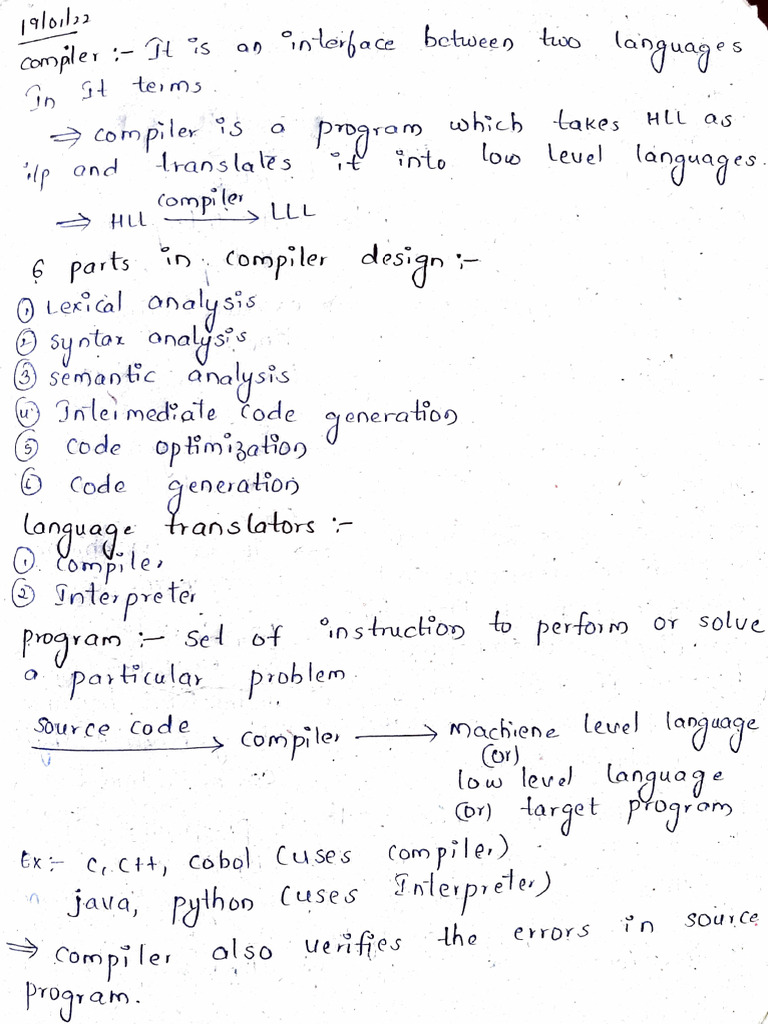 19/01/22
compiler :- It is an interface between two languages
In It terms.
⇒ compiler is a program which takes HLL as
i/p and translates it into low level languages.
compiler
⇒ HLL ⟶ LLL
6 parts in compiler design :-
① Lexical analysis
② syntax analysis
③ semantic analysis
④ Intermediate code generation
⑤ code optimization
⑥ code generation
language translators :-
① compiler
② Interpreter
program :- set of instruction to perform or solve
a particular problem.
source code ⟶ compiler ⟶ machiene level language
(or)
low level language
(or) target program
Ex :- c, c++, cobol (uses compiler)
java, python (uses Interpreter)
⇒ compiler also verifies the errors in source
program.